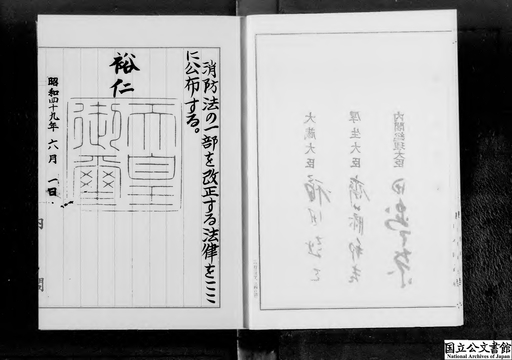 消防法の一部を改正する法律をここ
に公布する。
裕仁
天皇
御璽
昭和四十九年六月一日
内閣
内閣総理大臣
厚生大臣
大蔵大臣
国立公文書館
National Archives of Japan